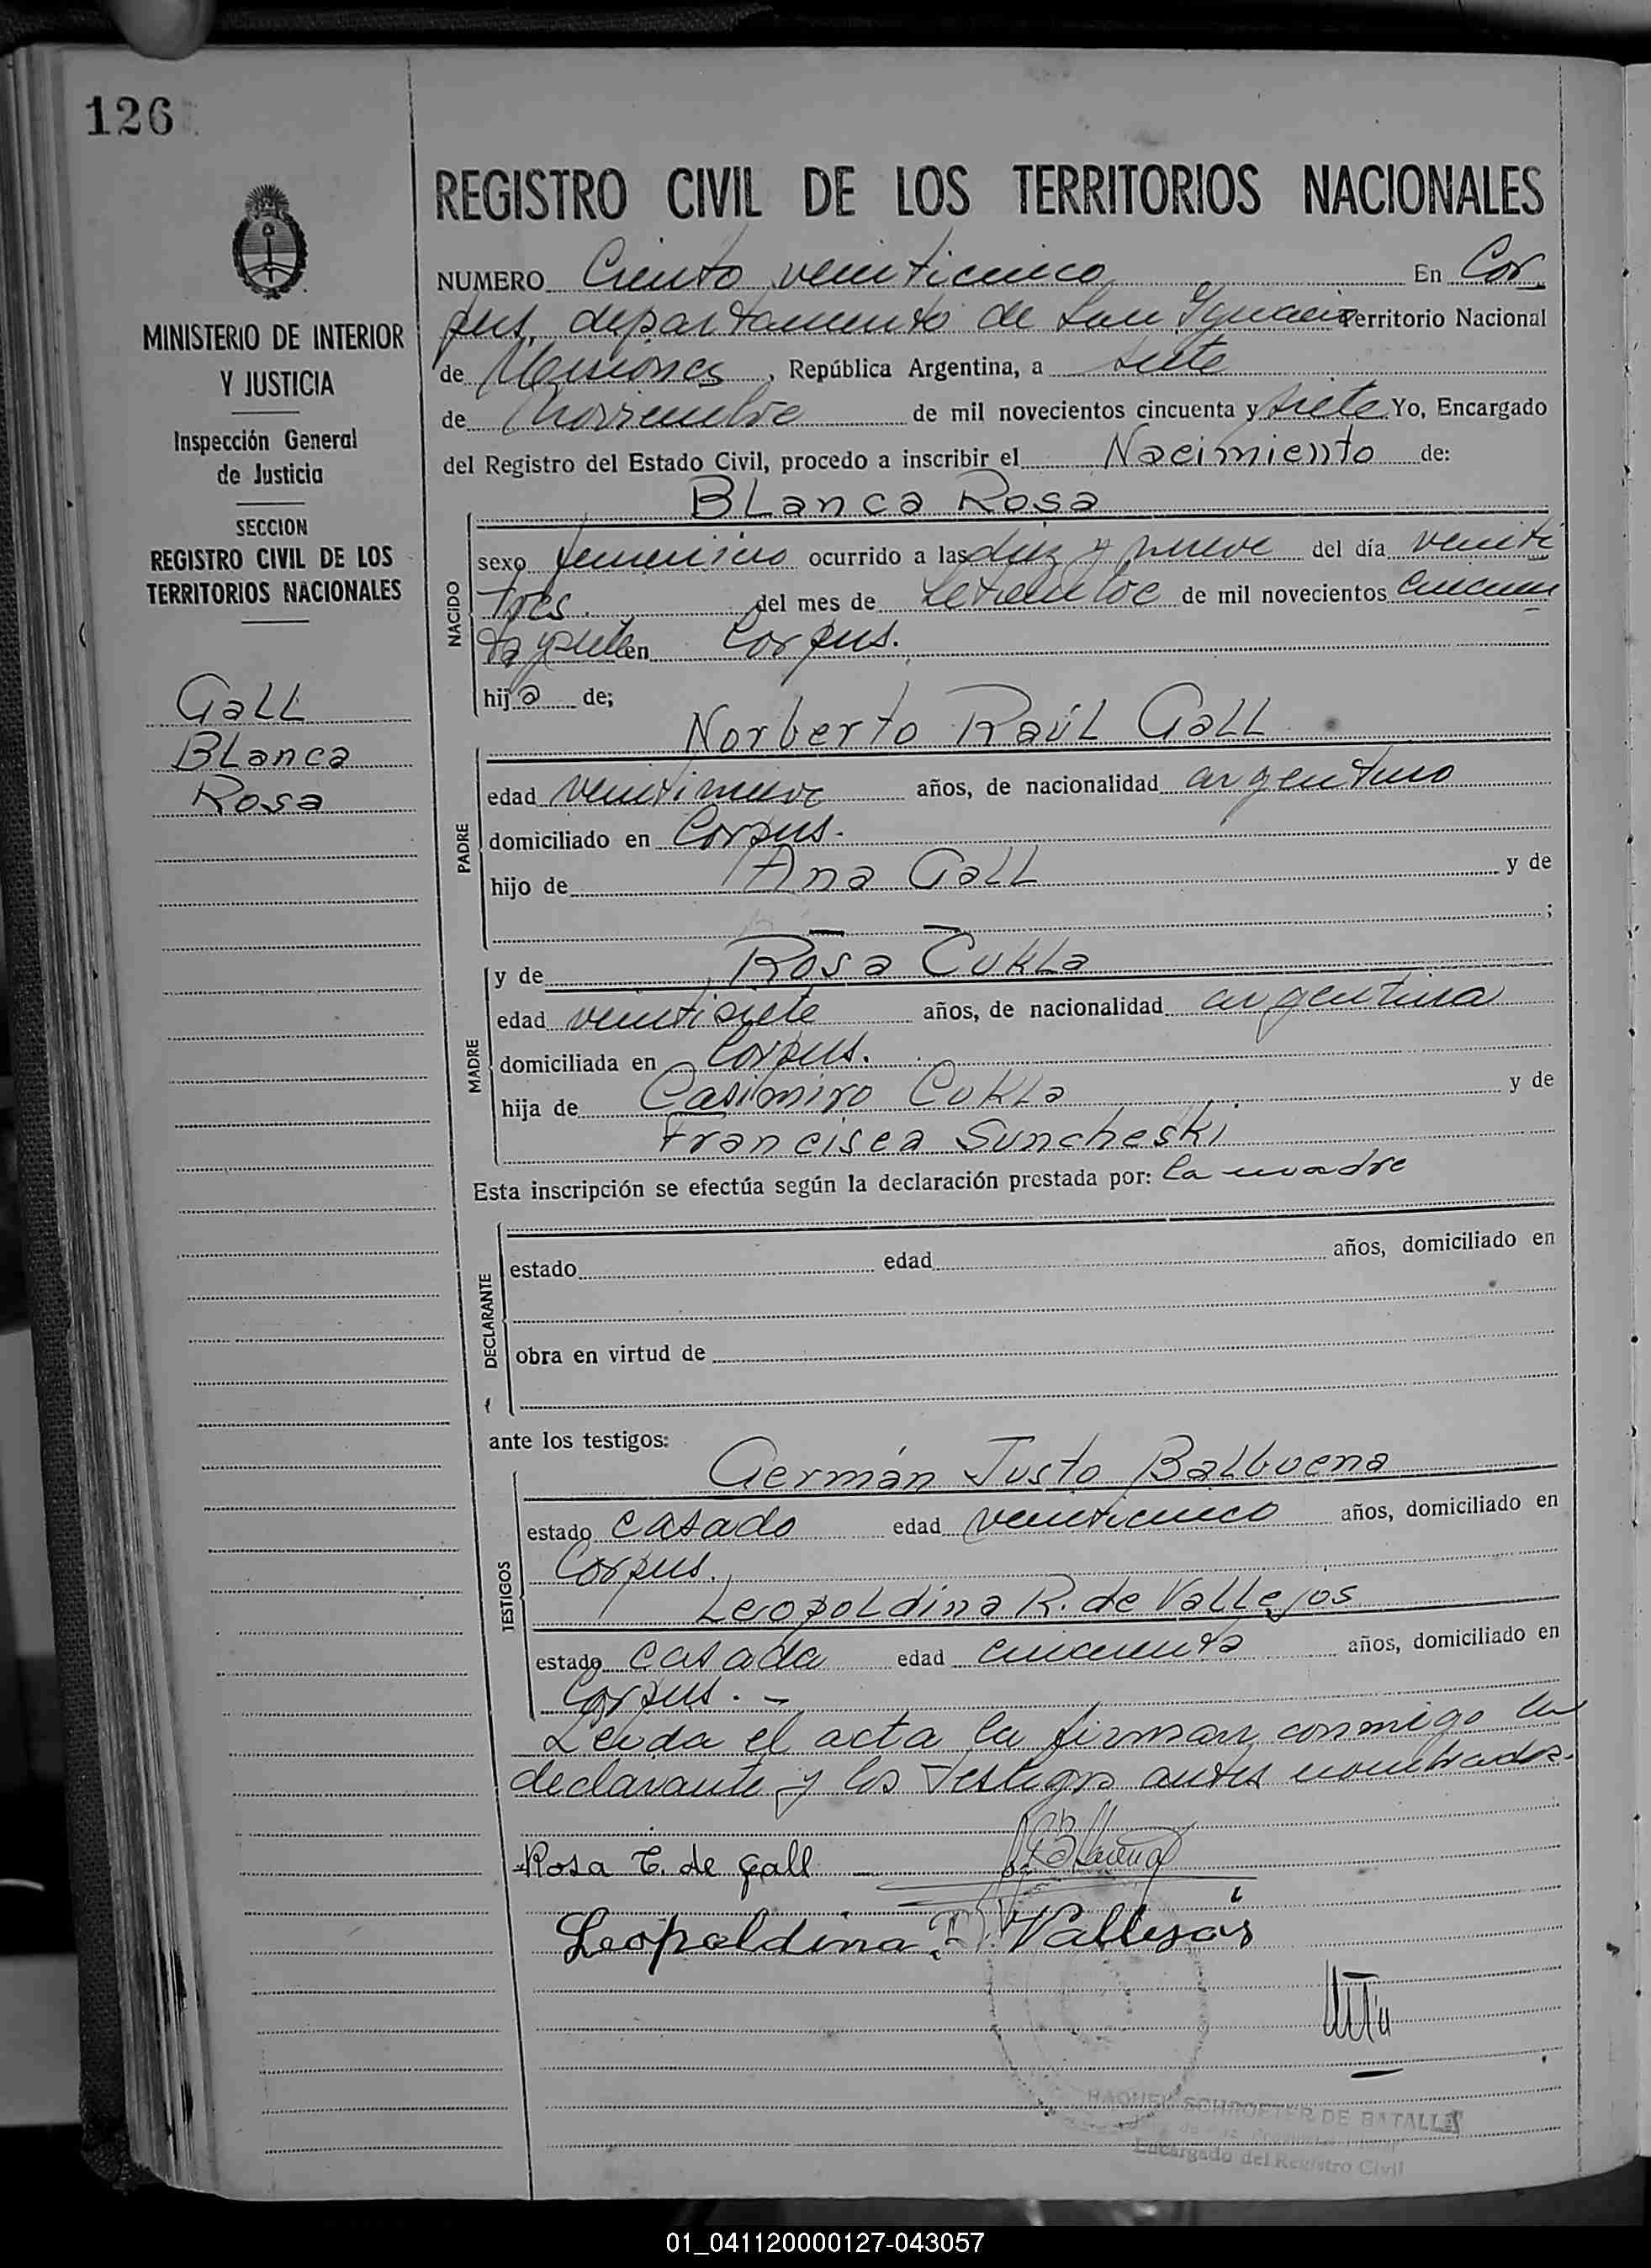 126
REGISTRO CIVIL DE LOS TERRITORIOS NACIONALES
NUMERO Ciento veinticinco En Cor
pus, departamento de San Ignacio Territorio Nacional
de Misiones, República Argentina, a siete
de noviembre de mil novecientos cincuenta y siete Yo, Encargado
del Registro del Estado Civil, procedo a inscribir el Nacimiento de:
Blanca Rosa
NACIDO
sexo femenino ocurrido a las diez y nueve del día veinti
tres del mes de setiembre de mil novecientos cincuen
ta y siete en Corpus.
hija de;
PADRE
Norberto Raúl Gall
edad veintinueve años, de nacionalidad argentino
domiciliado en Corpus.
hijo de Ana Gall y de
;
MADRE
y de Rosa Cukla
edad veintisiete años, de nacionalidad argentina
domiciliada en Corpus.
hija de Casimiro Cukla y de
Francisca Suncheski
Esta inscripción se efectúa según la declaración prestada por: la madre
DECLARANTE
estado edad años, domiciliado en
obra en virtud de
ante los testigos:
TESTIGOS
Germán Justo Balbuena
estado casado edad veinticinco años, domiciliado en
Corpus.
Leopoldina R. de Vallejos
estado casada edad cincuenta años, domiciliado en
Corpus. -
Leida el acta la firman conmigo la
declarante y los testigos antes nombrados.-
Rosa C. de Gall
Leopoldina Vallejos
RAQUEL SCHROETER DE BATALLA
Encargado del Registro Civil
MINISTERIO DE INTERIOR
Y JUSTICIA
Inspección General
de Justicia
SECCION
REGISTRO CIVIL DE LOS
TERRITORIOS NACIONALES
Gall
Blanca
Rosa
01_041120000127-043057